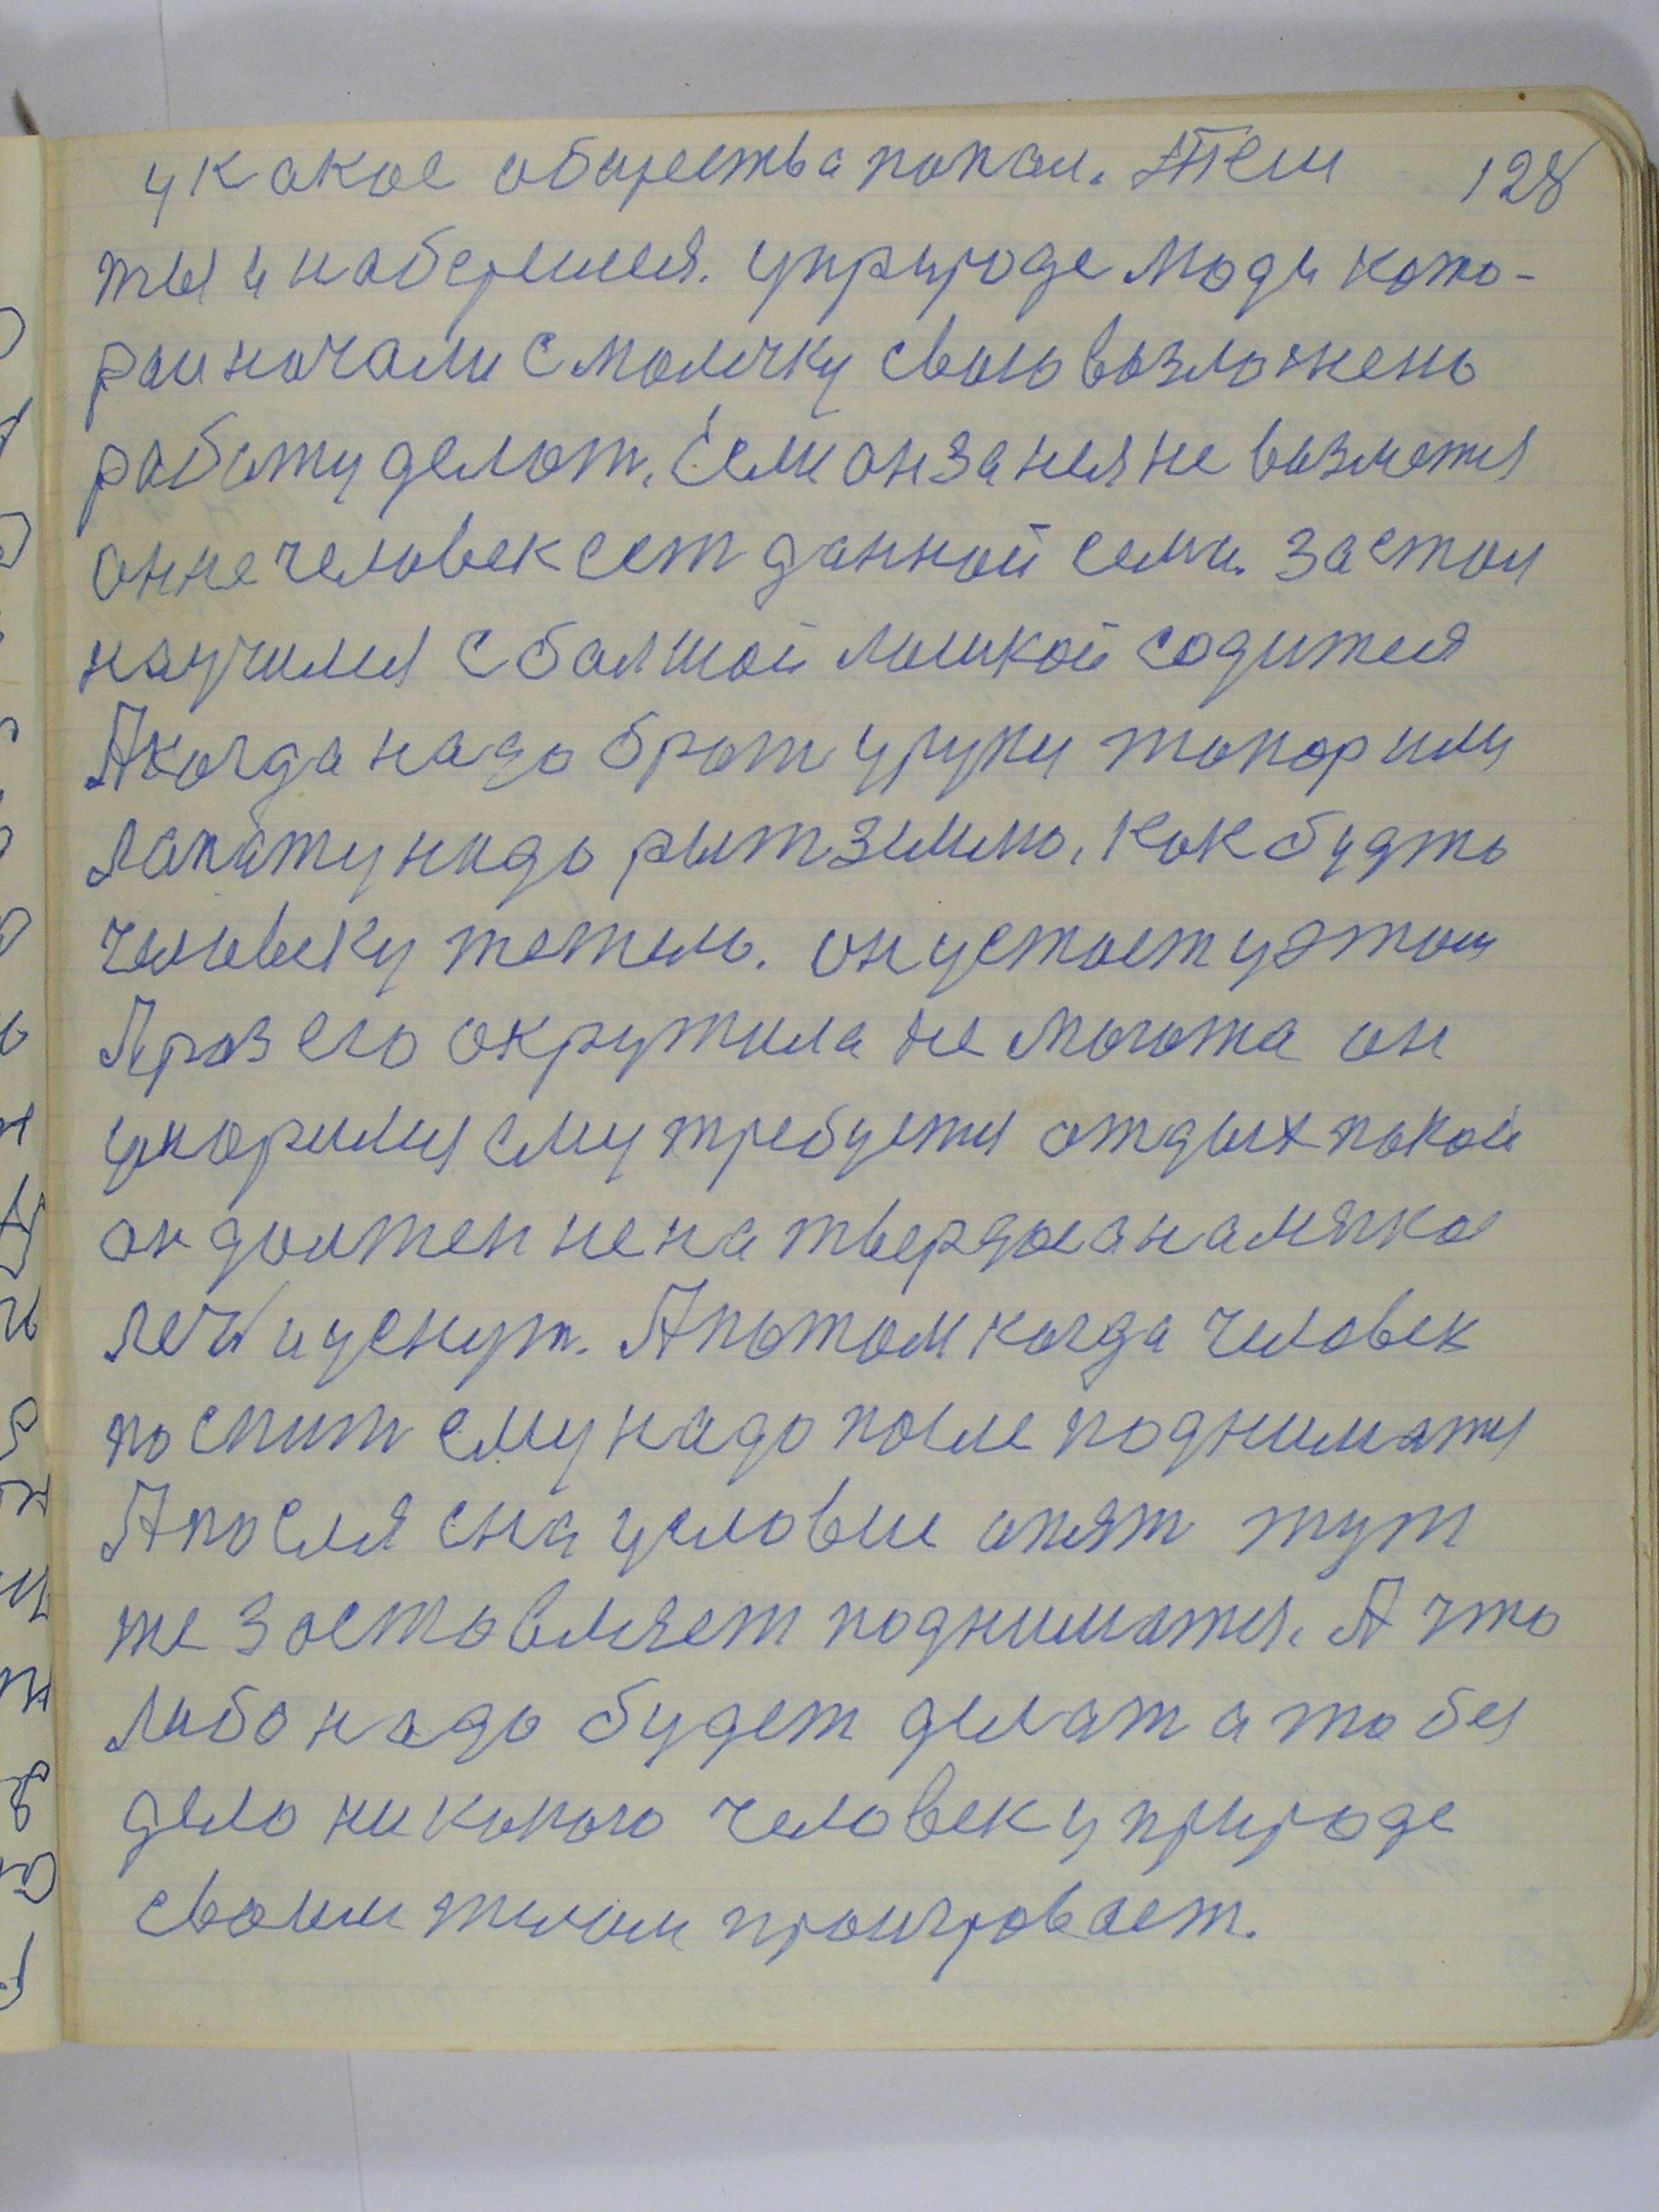 у какое общества попал. Тем 128
ты и наберешся. у природе люди кото-
раи начали с малечку свою возложень
работу делат. Если он за нея не возметя
он не человек сет данной семи. за стол
научился с балшой лошкой садится
А когда надо брат у руки топор или
лапату надо рыт землю. Как будто
человеку тежело. он устает у этом
Враз его окрутила не могота он
уморился ему требуетя отдых покой
он должен не на твердое а на мягкое
леч и уснут. А потом когда человек
поспит ему надо после подниматя
А посля сна условие опят тут
же заставляет подниматся. А что
либо надо будет делат а то без
дело никокого человек у природе
своим телом проигровает.